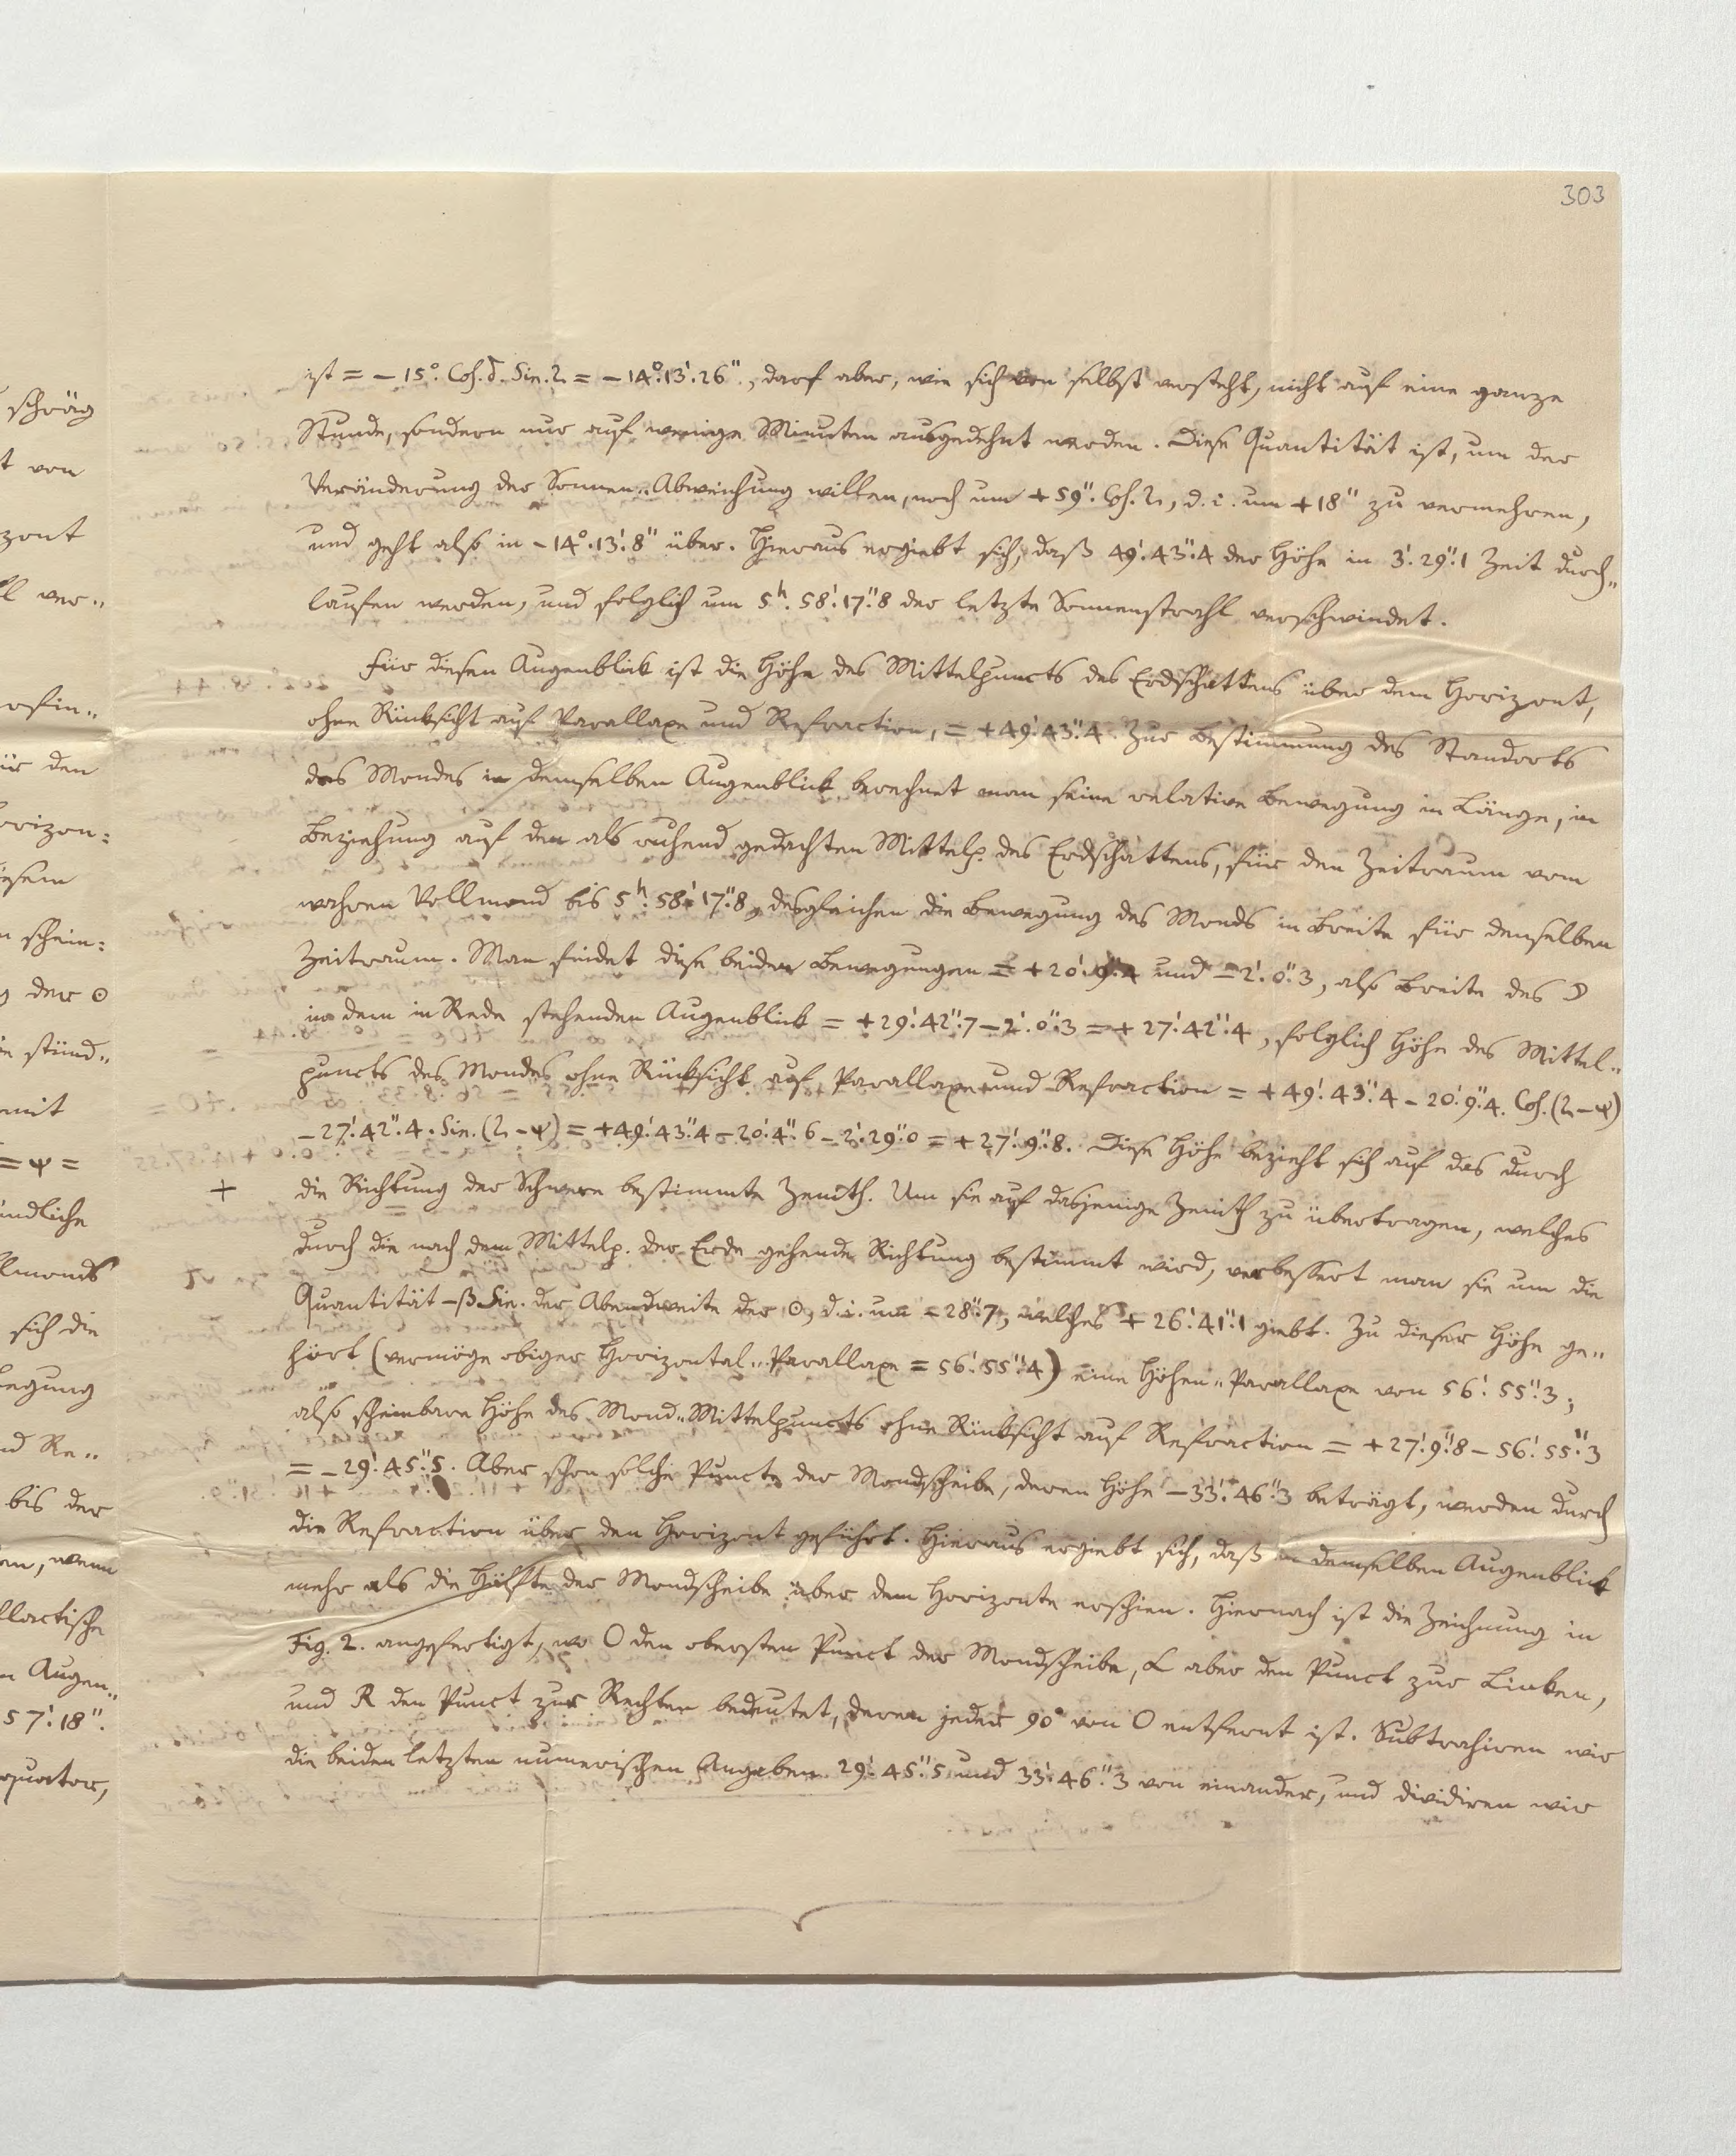 303
schräg
t von
zont
ll ver„
ist = – 15°. Cos. δ. Sin. η = – 14°. 13'. 26"., darf aber, wie sich von selbst versteht, nicht auf eine ganze
Stunde, sondern nur auf wenige Minuten ausgedehnt werden. Diese Quantität ist, um der
Veränderung der Sonnen„Abweichung willen, noch um + 59". Cos. η, d. i. um + 18" zu vermehren,
und geht also in – 14°. 13'. 8" über. Hieraus ergiebt sich, daß 49'. 43".4 der Höhe in 3'. 29".1 Zeit durch„
laufen werden, und folglich um 5h. 58'. 17".8 der letzte Sonnenstrahl verschwindet.
Für diesen Augenblick ist die Höhe des Mittelpuncts des Erdschattens über dem Horizont,
ohne Rücksicht auf Parallaxe und Refraction, = + 49'. 43".4. Zur Bestimmung des Standorts
des Mondes in demselben Augenblick berechnet man seine relative Bewegung in Länge, in
Beziehung auf den als ruhend gedachten Mittelp. des Erdschattens, für den Zeitraum vom
wahren Vollmond bis 5h. 58'. 17".8, desgleichen die Bewegung des Monds in Breite für denselben
Zeitraum. Man findet diese beiden Bewegungen = + 20'. 9".4 und – 2'. 0".3, also Breite des ☽
in dem in Rede stehenden Augenblick = + 29'. 42".7 – 2'. 0".3 = + 27'. 42".4, folglich Höhe des Mittel„
puncts des Mondes ohne Rücksicht auf Parallaxe und Refraction = + 49'. 43".4 – 20'. 9".4. Cos. (η – ψ)
– 27'. 42".4. Sin. (η – ψ) = + 49'. 43".4 – 20'. 4".6 – 2'. 29".0 = + 27'. 9".8. Diese Höhe bezieht sich auf das durch
+ die Richtung der Schwere bestimmte Zenith. Um sie auf dasjenige Zenith zu übertragen, welches
durch die nach dem Mittelp. der Erde gehende Richtung bestimmt wird, verbessert man sie um die
Quantität – β Sin. der Abendweite der ☉, d. i. um – 28".7, welches + 26'. 41".1 giebt. Zu dieser Höhe ge„
hört (vermöge obiger Horizontal„Parallaxe = 56'. 55".4) eine Höhen„Parallaxe von 56'. 55".3;
also scheinbare Höhe des Mond„Mittelpuncts ohne Rücksicht auf Refraction = + 27'. 9".8 – 56'. 55".3
= – 29'. 45".5. Aber schon solche Puncte der Mondscheibe, deren Höhe – 33'. 46".3 beträgt, werden durch
die Refraction über den Horizont geführt. Hieraus ergiebt sich, daß in demselben Augenblick
mehr als die Hälfte der Mondscheibe über dem Horizonte erschien. Hiernach ist die Zeichnung in
Fig. 2. angefertigt, wo O den obersten Punct der Mondscheibe, L aber den Punct zur Linken,
und R den Punct zur Rechten bedeutet, deren jeder 90° von O entfernt ist. Subtrahiren wir
die beiden letzten numerischen Angaben 29'. 45".5 und 33'. 46".3 von einander, und dividiren wir
ür den
orizon:
iesem
n schein:
g der ☉
in stünd„
mit
= ψ =
ündliche
llmonds
sich die
wegung
nd Re„
bis der
en, wenn
llactische
n Augen„
57'. 18".
quator,